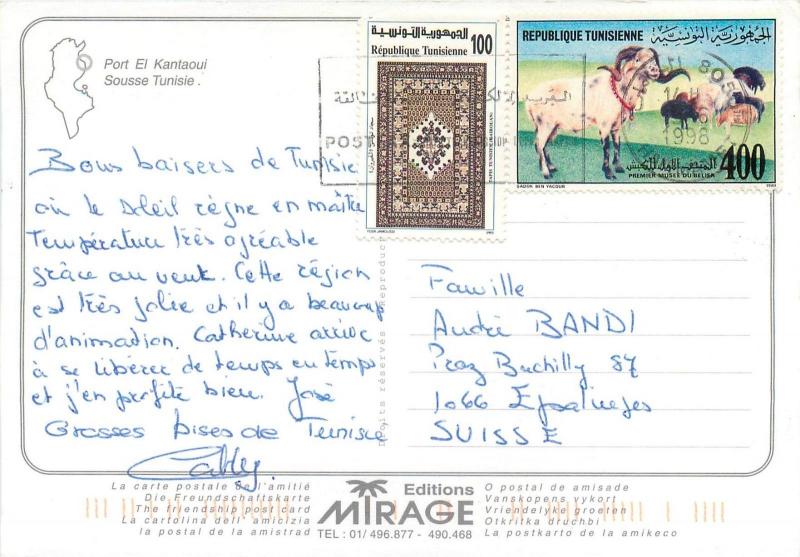 Port El Kantaoui
Sousse Tunisie.
الجمهورية التونسية
République Tunisienne 100
REPUBLIQUE TUNISIENNE الجمهورية التونسية
1998
400
PREMIER MUSÉE DU BELIER
SADOK BEN YACOUB
Bons baisers de Tunisie
où le soleil règne en maître
Température très agréable
grâce au vent. Cette région
est très jolie et il y a beaucoup
d'animation. Catherine arrive
à se libérer de temps en temps
et j'en profite bien. José
Grosses bises de Tunisie
Cathy
Famille
André BANDI
Praz Buchilly 87
1066 Epalinges
SUISSE
Droits réservés Reproduc
La carte postale de l'amitié
Die Freundschaftskarte
The friendship post card
La cartolina dell' amicizia
la postal de la amistrad
Editions
MIRAGE
TEL : 01/ 496.877 - 490.468
O postal de amisade
Vanskopens vykort
Vriendelyke groeten
Otkritka druchbi
La postkarto de la amikeco